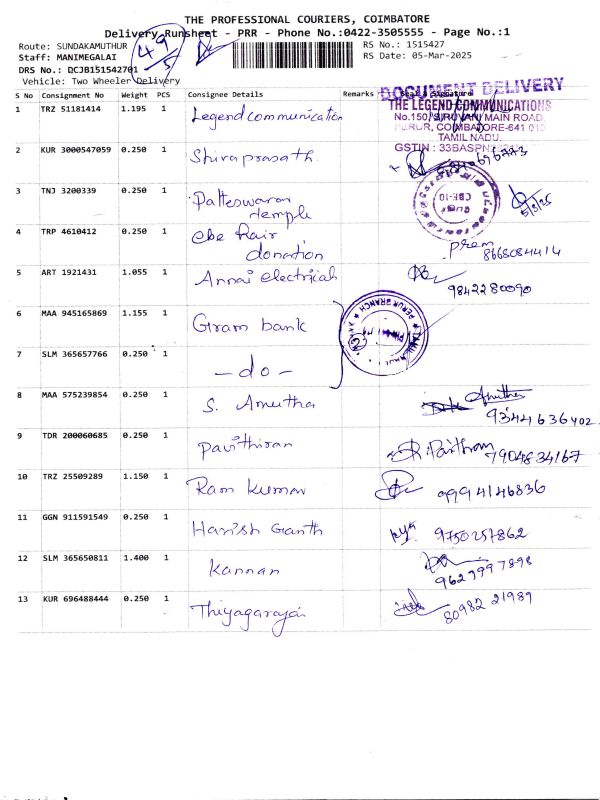 THE PROFESSIONAL COURIERS, COIMBATORE
Delivery Runsheet - PRR - Phone No.:0422-3505555 - Page No.:1
Route: SUNDAKAMUTHUR
RS No.: 1515427
Staff: MANIMEGALAI
RS Date: 05-Mar-2025
DRS No.: DCJB151542701
Vehicle: Two Wheeler Delivery
49/5
S No Consignment No Weight PCS Consignee Details Remarks Seal & Signature
DOCUMENT DELIVERY
THE LEGEND COMMUNICATIONS
No.150, SIRUVANI MAIN ROAD,
PERUR, COIMBATORE-641 010
TAMIL NADU.
GSTIN : 33BASPN
1 TRZ 51181414 1.195 1 Legend communication
2 KUR 3000547059 0.250 1 Shiva prasath.
3 TNJ 3200339 0.250 1 Patteswarar temple 5/3/25
4 TRP 4610412 0.250 1 ebe Hair donation prem 8668084414
5 ART 1921431 1.055 1 Annai electricals 9842280090
6 MAA 945165869 1.155 1 Gram bank
PERUR BRANCH
7 SLM 365657766 0.250 1 -do-
8 MAA 575239854 0.250 1 S. Amutha Amutha 9344636402
9 TDR 200060685 0.250 1 Pavithiran 7904834167
10 TRZ 25509289 1.150 1 Ram Kumar 9994146836
11 GGN 911591549 0.250 1 Harish Ganth 9750257862
12 SLM 365650811 1.400 1 Kannan 9627997898
13 KUR 696488444 0.250 1 Thiyagarajan 80982 21989